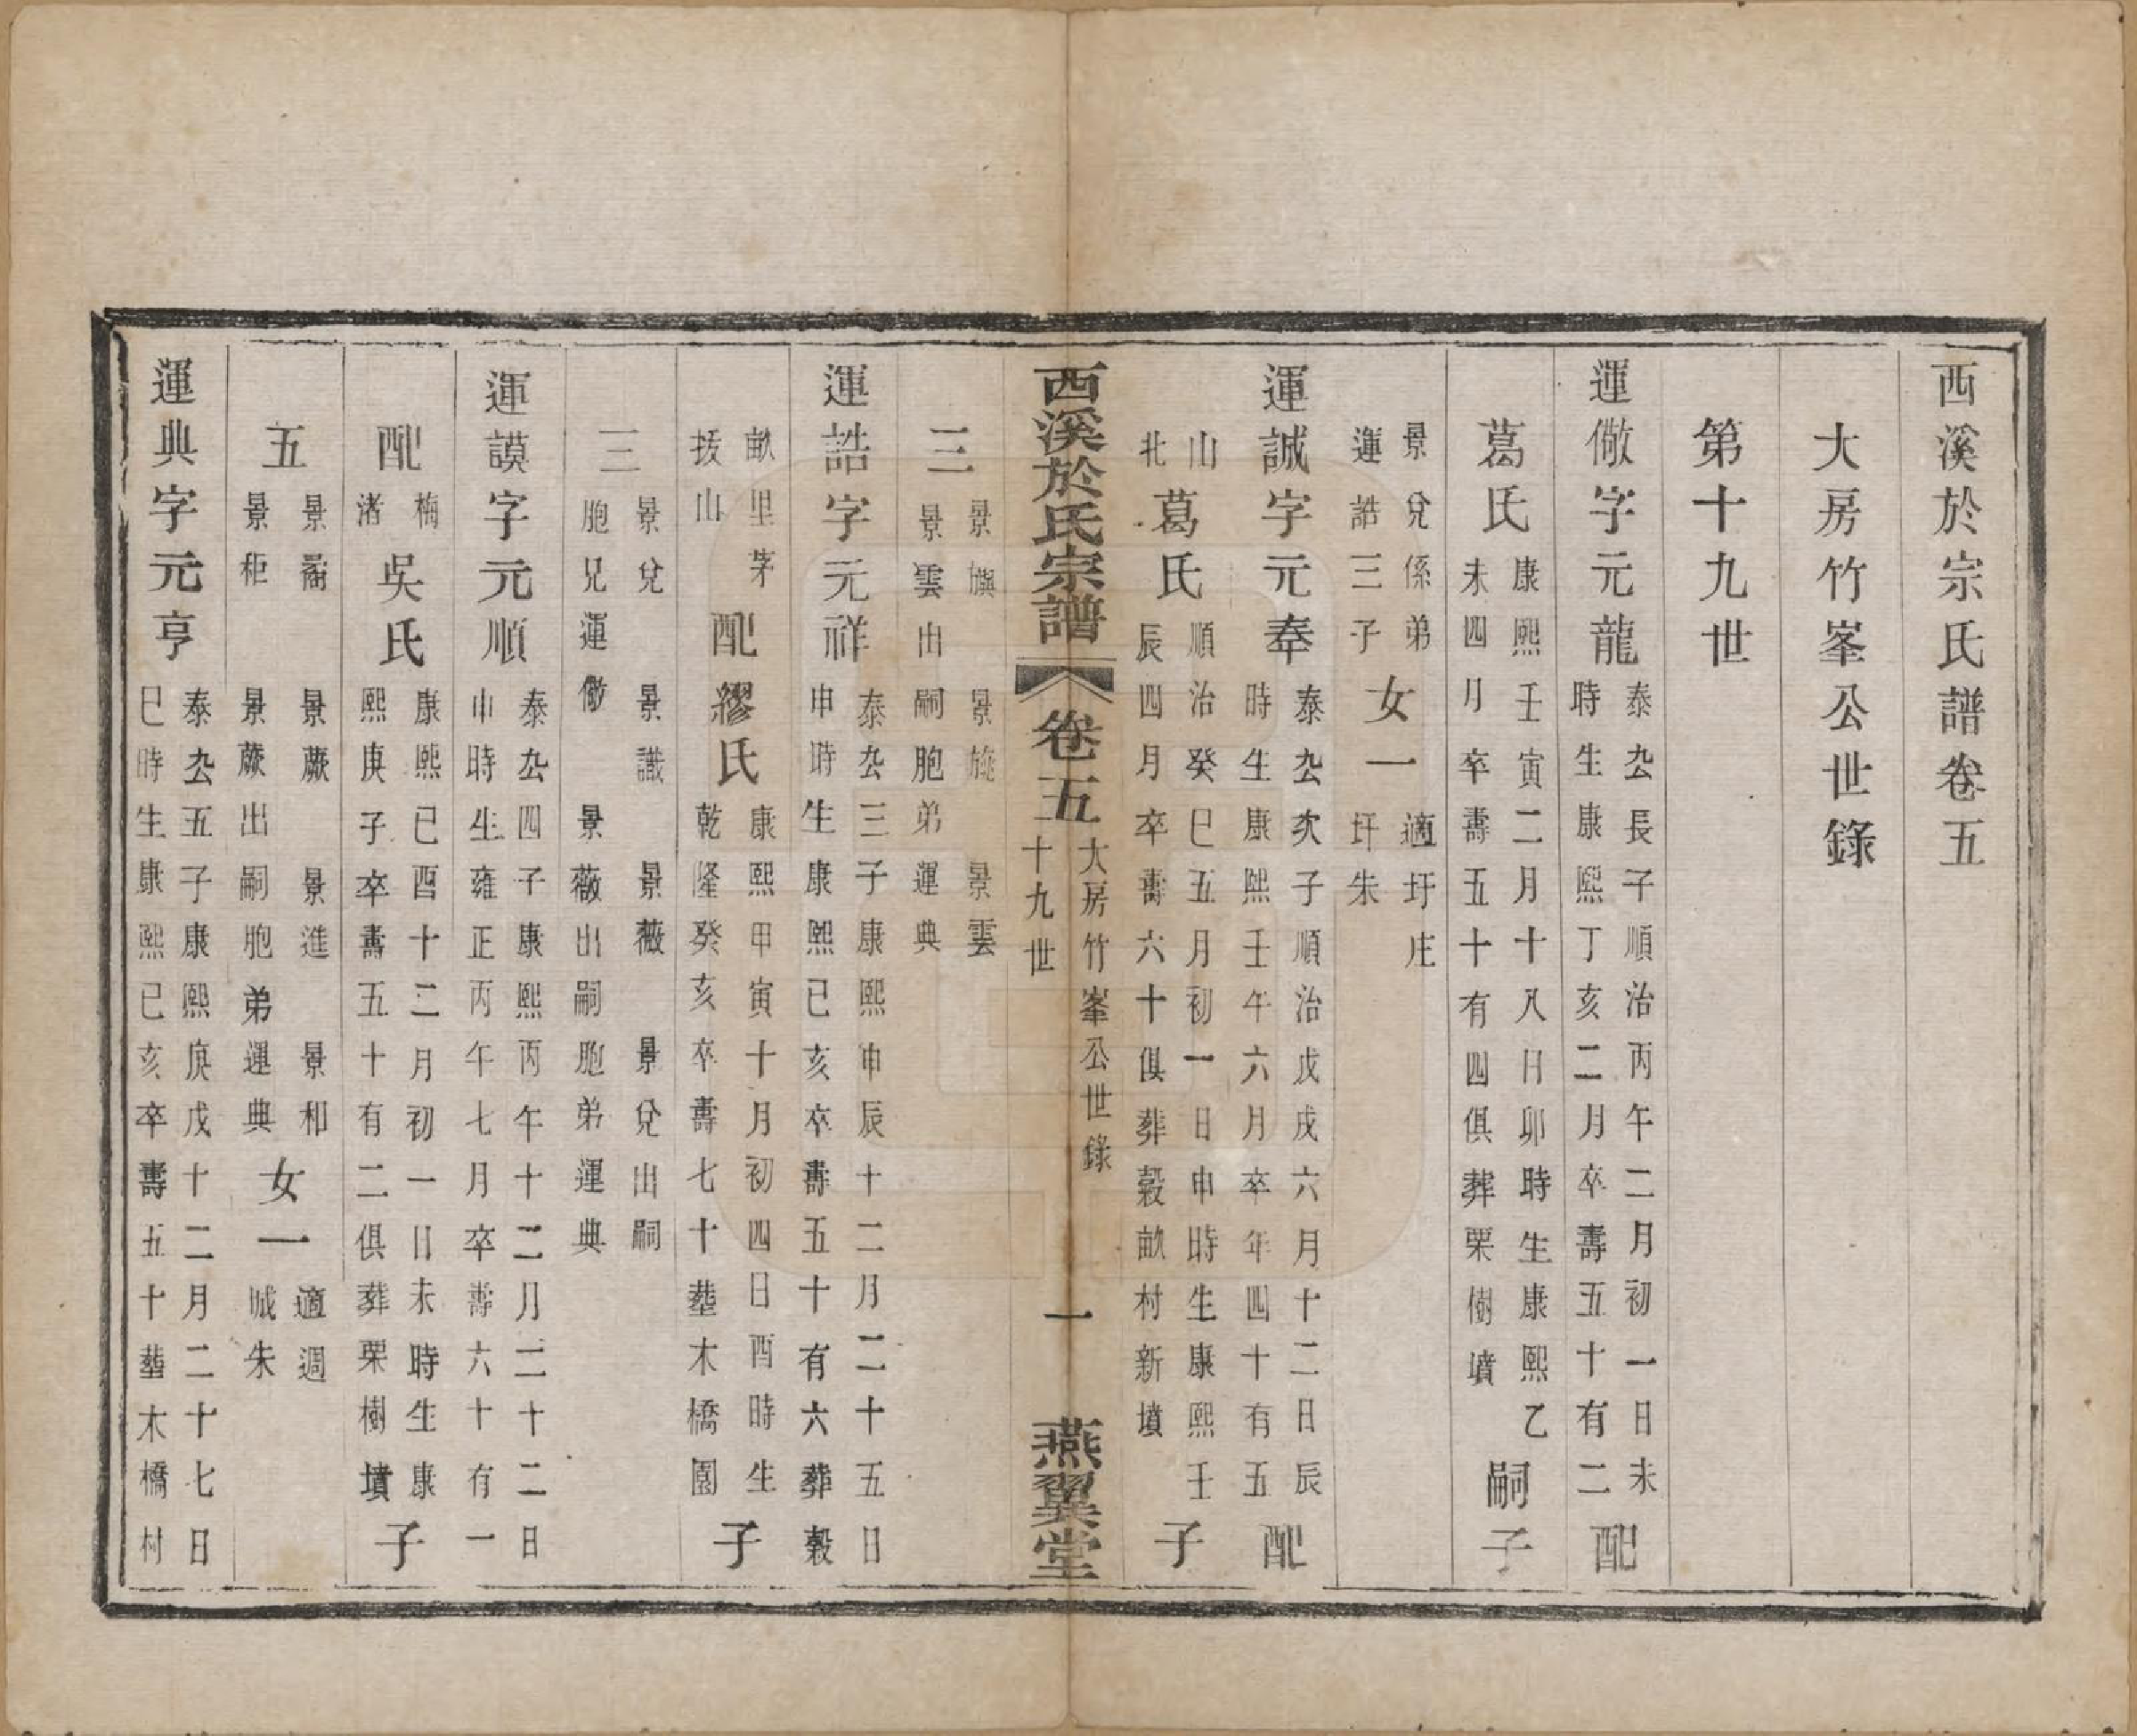 西溪於宗氏譜卷五
大房竹峯公世錄
第十九世
運儆字元龍
泰厺長子順治丙午二月初一日未
時生康熙丁亥二月卒壽五十有二
配
葛氏
康熙壬寅二月十八日卯時生康熙乙
未四月卒壽五十有四俱葬栗樹墳
嗣子
景兌係弟
運誥三子
女一
適圩庄
圩朱
運誠字元奉
泰厺次子順治戊戌六月十二日辰
時生康熙壬午六月卒年四十有五
配
山
北
葛氏
順治癸巳五月初一日申時生康熙壬
辰四月卒壽六十俱葬榖畝村新墳
子
西溪於氏宗譜
卷五
大房竹峯公世錄
十九世
一
燕翼堂
三
景旟 景旄 景雲
景雲出嗣胞弟運典
運誥字元祥
泰厺三子康熙申辰十二月二十五日
申時生康熙己亥卒壽五十有六葬榖
畝里茅
拔山
配繆氏
康熙甲寅十月初四日酉時生
乾隆癸亥卒壽七十塟木橋園
子
三
景兌 景讖 景薇 景兌出嗣
胞兄運儆 景薇出嗣胞弟運典
運謨字元順
泰厺四子康熙丙午十二月二十二日
申時生雍正丙午七月卒壽六十有一
配
梅
渚
吳氏
康熙己酉十二月初一日未時生康
熙庚子卒壽五十有二俱葬栗樹墳
子
五
景矞 景蕨 景進 景和
景秬 景蕨出嗣胞弟運典
女一
適週
城朱
運典字元亨
泰厺五子康熙庚戌十二月二十七日
巳時生康熙己亥卒壽五十塟木橋村